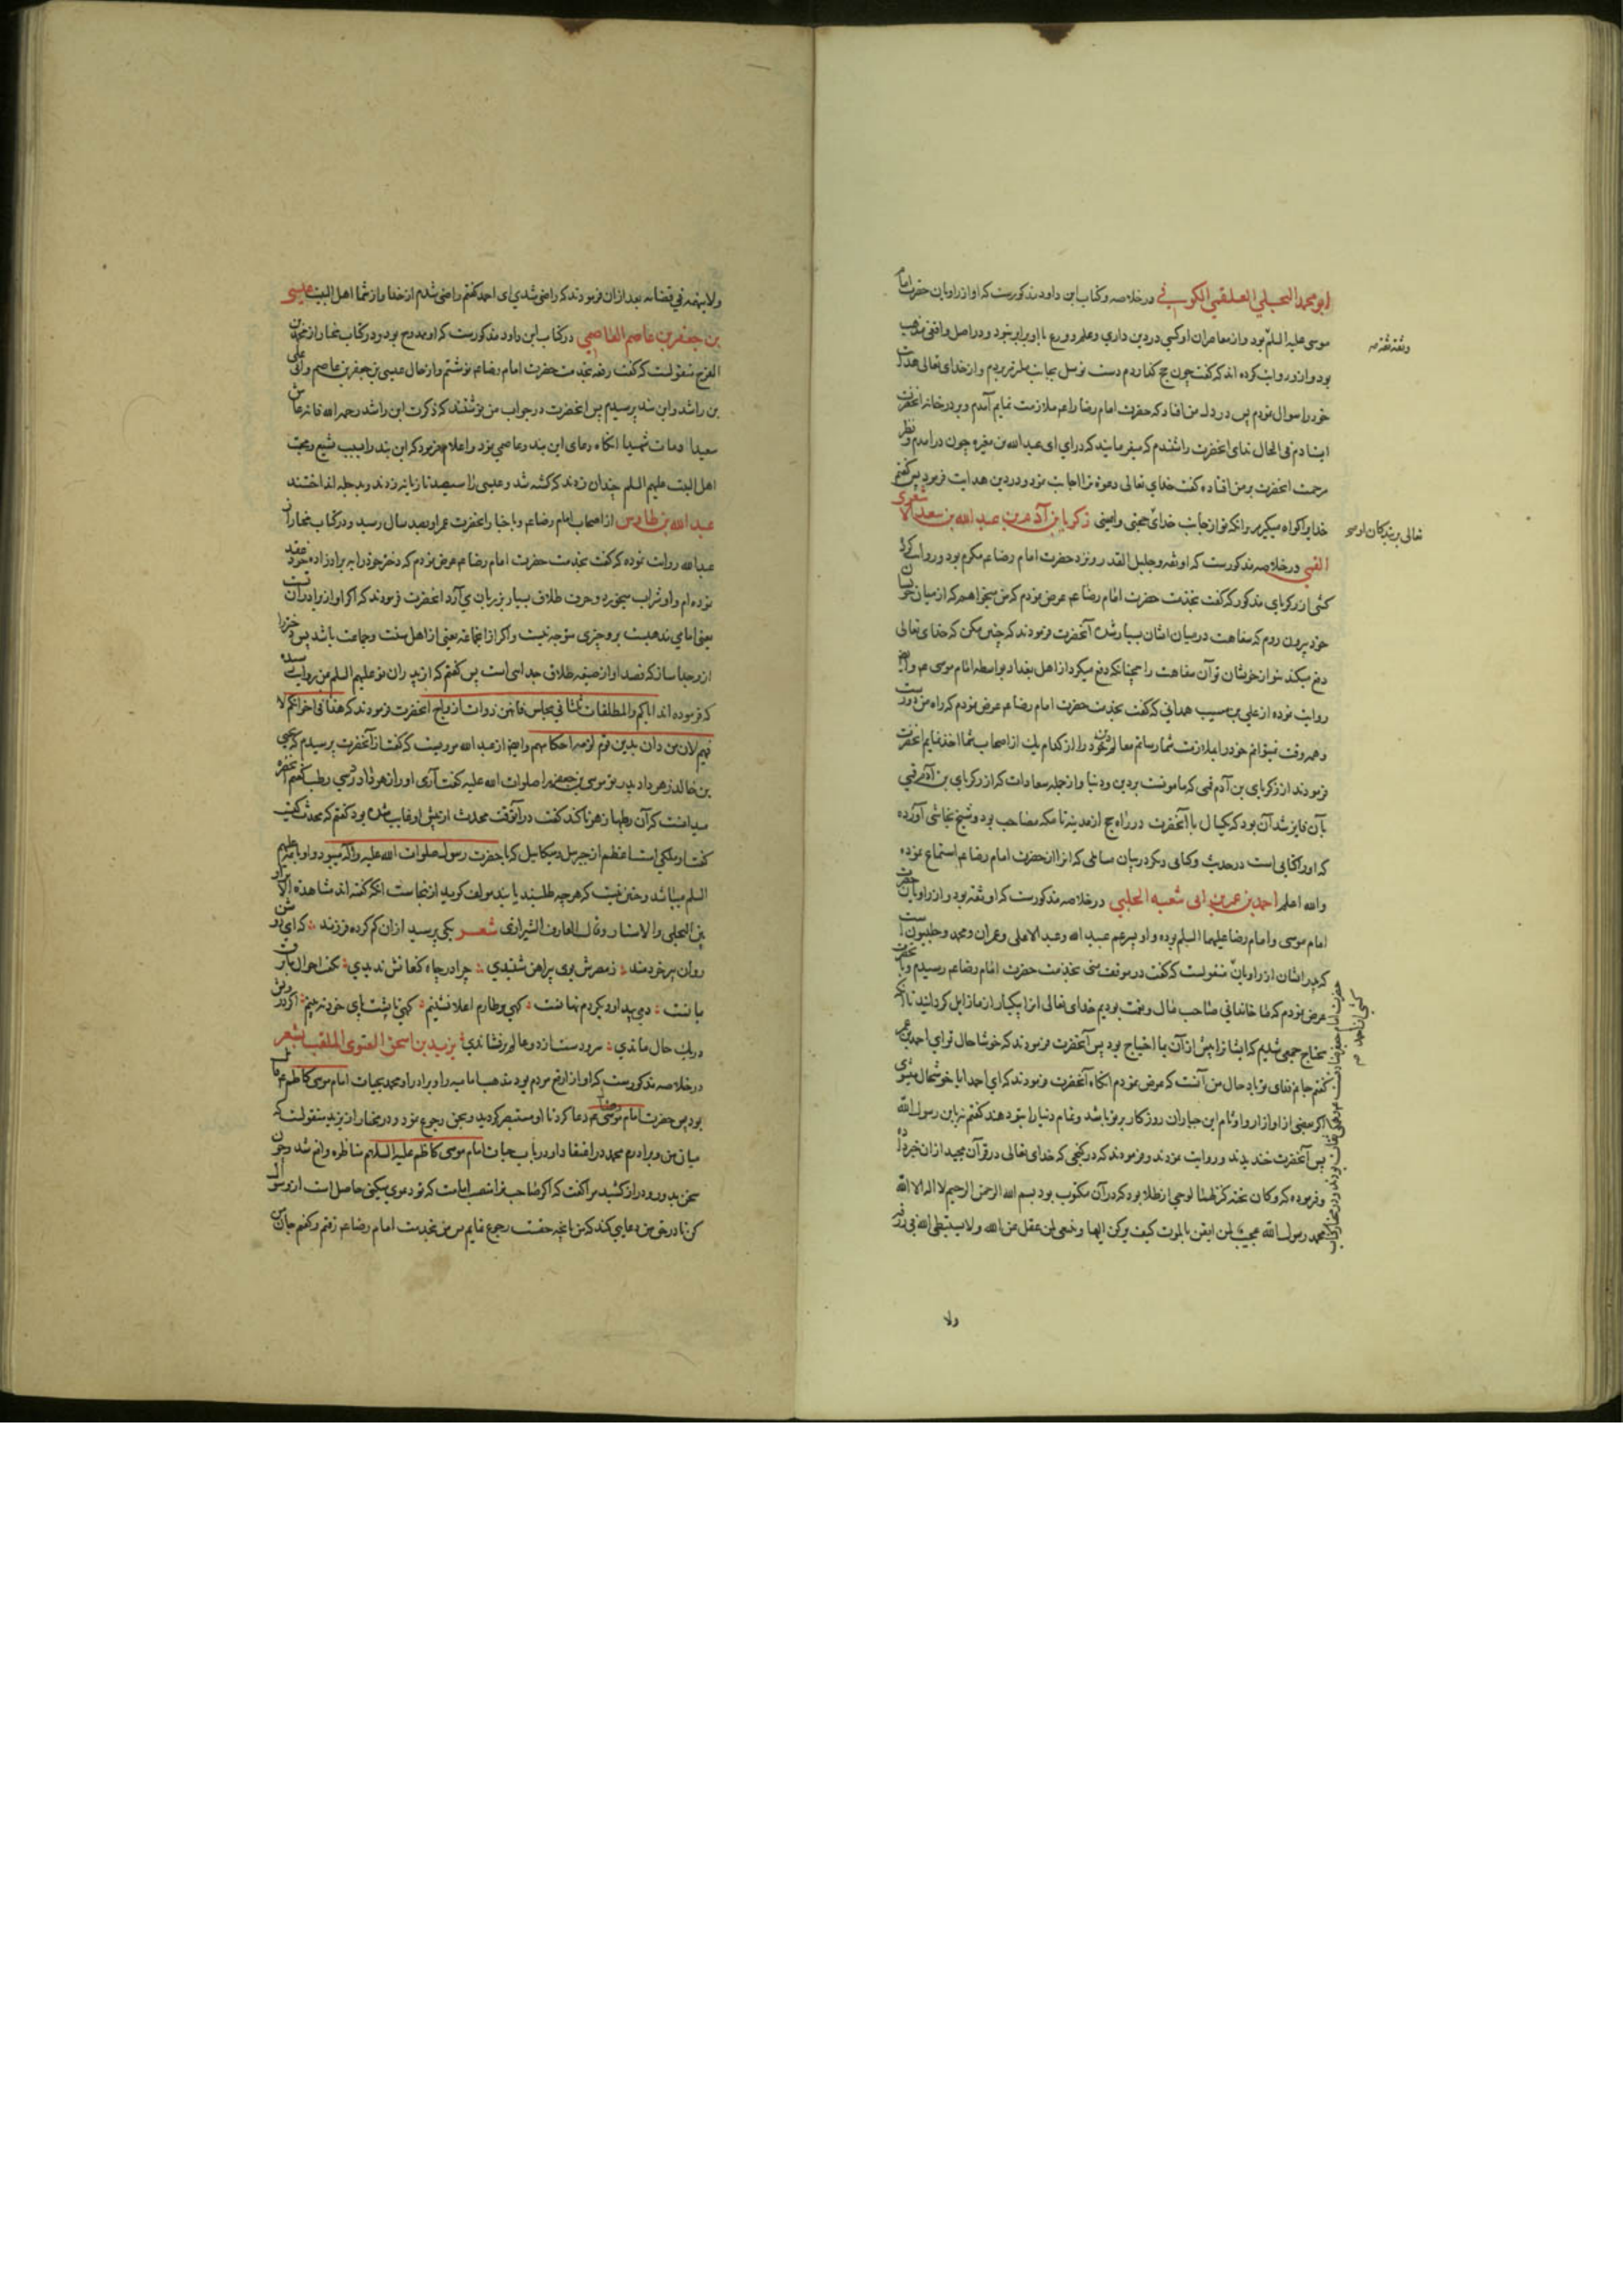 ابو محمد البجلی العلقمی الکوفی در خلاصه و کتاب ابن داود مذکورست که او از راویان حضرت امام
موسی علیه السلم بود و از معاصران او کسی در دین داری و علم و ورع با او برابر نبود و در اصل واقفی مذهب
بود و ازو روایت کرده اند که گفت چون حج کفا ردم دست توسل بجانب ملتزم بردم و از خدای تعالی هدایت
خود را سوال نمودم پس در دل من افتاد که حضرت امام رضا را عم ملازمت نمایم آمدم و بر در خانه آنحضرت
ایستادم فی الحال ندای آنحضرت را شنیدم که میفرمایند که درای ای عبد الله بن مغیره چون درآمدم و نظر
مرحمت آنحضرت بر من افتاده گفت خدای تعالی دعوة ترا اجابت نمود و در دین هدایت فرمود پس گفتم
خدایرا گواه میگیرم بر آنکه تو از جانب خدای حجتی و امینی زکریا بن آدم بن عبد الله بن سعد الاشعری
القمی در خلاصه مذکورست که او ثقه و جلیل القدر و نزد حضرت امام رضا عم مکرم بود و روایت کرده
کشی از زکریای مذکور که گفت بخدمت حضرت امام رضا عم عرض نمودم که من میخواهم که از میان خویشان
خود بیرون روم که سفاهت در میان ایشان بسیار شده آنحضرت فرمودند که چنین مکن که خدای تعالی
دفع میکند بتو از خویشان تو آن سفاهت را همچنانکه دفع میکرد از اهل بغداد بواسطه امام موسی عم و ایضا
روایت نموده از علی بن مسیب همدانی که گفت بخدمت حضرت امام رضا عم عرض نمودم که راه من دورست
و همه وقت نمیتوانم خود را بملازمت شما رسانم معالم دین خود را از کدام یک از اصحاب شما اخذ نمایم آنحضرت
فرمودند از زکریای بن آدم قمی که مامونست بر دین و دنیا و از جمله سعادات که از زکریای بن آدم قمی
بآن فایز شد آن بود که یکسال با آنحضرت در راه حج از مدینه تا مکه مصاحب بود و شیخ نجاشی آورده
که او را کتابی است در حدیث و کتابی دیگر در بیان مسایلی که انرا از حضرت امام رضا عم استماع نموده
والله اعلم احمد بن عمر بن ابی شعبه الحلبی در خلاصه مذکورست که او ثقه بود و از راویان حضرت
امام موسی و امام رضا علیهما السلم بوده و او پسر عم عبید الله و عبد الاعلی و عمران و محمد و حلبیون است
که پدر ایشان از راویان منقولست که گفت در موقف منی بخدمت حضرت امام رضا عم رسیدم و بآنحضرت
عرض نمودم که ما خاندانی صاحب مال و نعمت بودیم خدای تعالی انرا بیکبار از ما زایل گردانید تا آنکه
محتاج جمعی شدیم که ایشانرا پیش از آن بما احتیاج بود پس آنحضرت فرمودند که خوشا حال تو ای احمد بن عمر
گفتم جانم فدای تو باد حال من آنست که عرض نمودم آنگاه آنحضرت فرمودند که ای احمد ایا خوشحال میشوی
پس آنحضرت خندیدند و روایت نمودند و فرمودند که در گنجی که خدای تعالی در قرآن مجید از ان خبر داده
و فرموده که و کان تحته کنز لهما لوحی از طلا بود که در آن مکتوب بود بسم الله الرحمن الرحیم لا اله الا الله
محمد رسول الله عجبت لمن ایقن بالموت کیف یرکن الیها و ینبغی لمن عقل عن الله و لا یستبطی الله فی رزقه
ولا
وثقه ثقه صه
تعالی بر بندگان اوست
ولا یتهمه فی قضائه بعد ازان فرمودند که راضی شدی ای احمد گفتم راضی شدم از خدا و از شما اهل البیت عیسی
بن جعفر بن عاصم العاصمی در کتاب ابن داود مذکورست که او ممدوح بود و در کتاب مختار از محمد بن
الفرج منقولست که گفت رقعه بخدمت حضرت امام رضا عم نوشتم و از حال عیسی بن جعفر بن عاصم و ابی علی
بن راشد و ابن بند پرسیدم پس آنحضرت در جواب من نوشتند که ذکرت ابن راشد رحمه الله فانه عاش
سعیدا و مات شهیدا آنگاه دعای ابن بند و عاصمی نمود و اعلام فرمود که ابن بند را بسبب تشیع و محبت
اهل البیت علیهم السلم چندان زدند که کشته شد و عیسی را سیصد تازیانه زدند و بدجله انداختند
عبد الله بن طاوس از اصحاب امام رضا عم و باخبار آنحضرت عمر او بصد سال رسید و در کتاب مختار از
عبد الله روایت نموده که گفت بخدمت حضرت امام رضا عم عرض نمودم که دختر خود را به برادرزاده خود عقد
نموده ام و او شراب میخورد و حرف طلاق بسیار بر زبان می آرد آنحضرت فرمودند که اگر او از برادران تست
یعنی امامی مذهبست برو چیزی متوجه نیست و اگر از انجماعه یعنی از اهل سنت و جماعت باشد پس دختر را
ازو جدا ساز که قصد او از صیغه طلاق جدایی است پس گفتم که از پدران تو علیهم السلم بمن روایت رسیده
که فرموده اند ایاکم والمطلقات ثلثا فی مجلس فانهن ذوات ازواج آنحضرت فرمودند که هذا فی اخوانکم لا
فیهم لان من دان بدین قوم لزمته احکامهم و ایضا از عبد الله مرویست که گفت از آنحضرت پرسیدم که یحیی
بن خالد زهر داد پدر تو موسی بن جعفر را صلوات الله علیه گفت آری او را زهر داد در سی رطب گفتم آنحضرت
میدانست که آن رطبها زهرناکند گفت در آنوقت محدث از پیش او غایب شده بود گفتم که محدث کیست
گفت او ملکی است اعظم از جبریل و میکاییل که با حضرت رسول صلوات الله علیه و آله میبود و او با ائمه علیهم
السلم میباشد و چنین نیست که هر چه طلبند یابند مولف گوید ازینجاست آنکه گفته اند مشاهدة الابرار
بین التجلی والاستتار و قال العارف الشیرازی شعر یکی پرسید ازان گم کرده فرزند که ای روشن
روان پیر خردمند ز مصرش بوی پیراهن شنیدی چرا در چاه کنعانش ندیدی گفت احوال ما برق
یمانست دمی پیدا و دیگر دم نهانست گهی بر طارم اعلا نشینم گهی تا پشت پای خود نبینم اگر درویش
در یک حال ماندی سر و دست از دو عالم برفشاندی یزید بن اسحق الغنوی الملقب بشعر
در خلاصه مذکورست که او از ارفع مردم بود مذهب امامیه را و برادر او محمد بحیات امام موسی کاظم عم قایل
بود پس حضرت امام موسی رضا عم دعا کرد تا او مستبصر گردید و بحق رجوع نمود و در مختار از یزید منقولست که
میان من و برادرم محمد در اعتقاد او در باب حیات امام موسی کاظم علیه السلام مناظره واقع شد و چون
سخن بدور و دراز کشید مرا گفت که اگر صاحب ترا منصب امامت که تو دعوی میکنی حاصل است ازو سوال
کن تا در حق من دعایی کند که من بآنچه حقست رجوع نمایم پس من بخدمت امام رضا عم رفتم و گفتم جان من